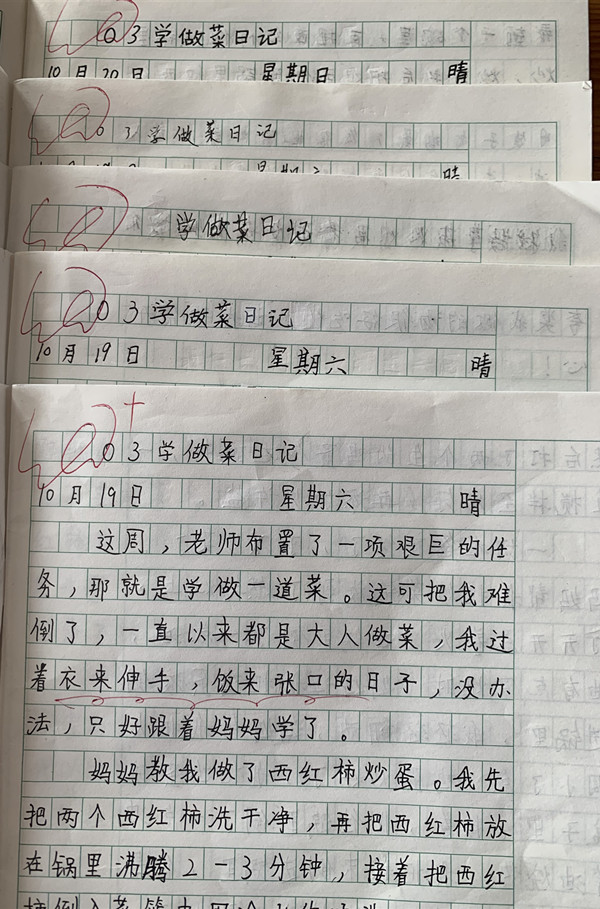 03学做菜日记
10月20日 星期日 晴
03学做菜日记
晴
学做菜日记
03学做菜日记
10月19日 星期六 晴
03学做菜日记
10月19日 星期六 晴
这周，老师布置了一项艰巨的任
务，那就是学做一道菜。这可把我难
倒了，一直以来都是大人做菜，我过
着衣来伸手，饭来张口的日子，没办
法，只好跟着妈妈学了。
妈妈教我做了西红柿炒蛋。我先
把两个西红柿洗干净，再把西红柿放
在锅里沸腾2-3分钟，接着把西红